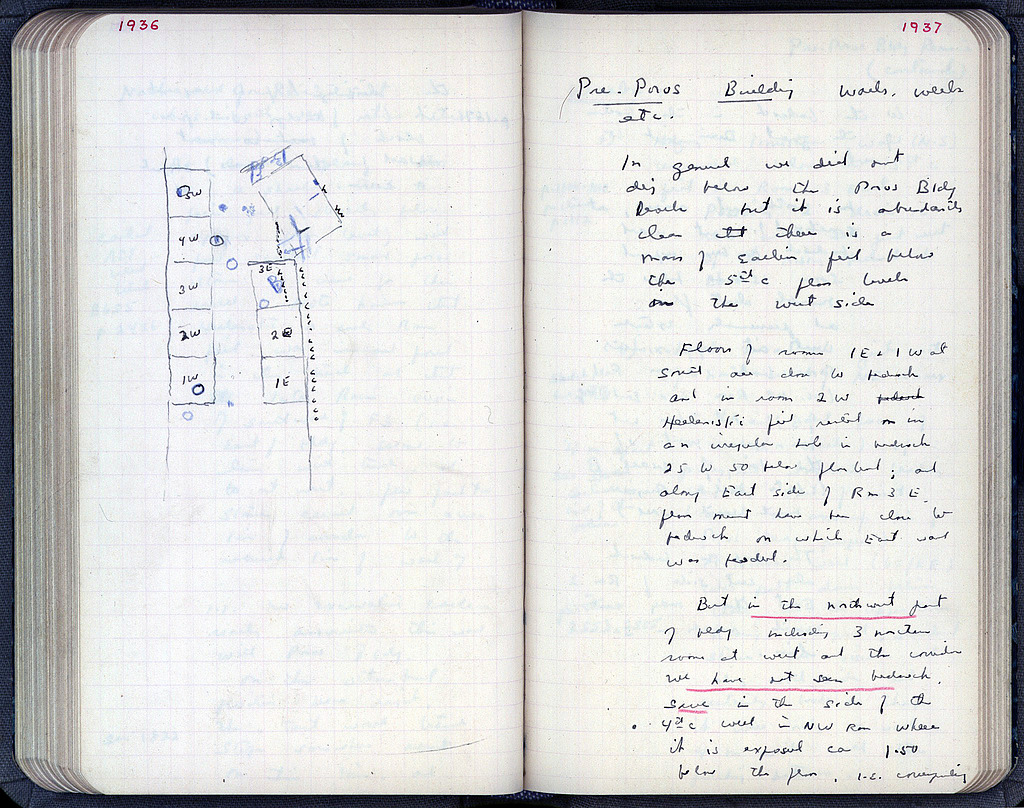 1936
5W
4W
3W
2W
1W
3E
2E
1E
1937
Pre-Poros Building walls, wells
etc.
In general we did not
dig below the Poros Bldg
levels but it is abundantly
clear that there is a
mass of earlier fill below
the 5th c floor levels
on the west side
Floors of rooms 1E & 1W at
South are close to bedrock
and in room 2W bedrock
Hellenistic fill rested on in
an irregular hole in bedrock
25 to 50 below floor level; and
along East side of Rm 3E
floor must have been close to
bedrock on which East wall
was bedded.
But in the northwest part
of bldg including 3 northern
rooms at west and the corridor
we have not seen bedrock.
save in the side of the
4th c well in NW Rm where
it is exposed ca 1.50
below the floor, i.e. corresponding